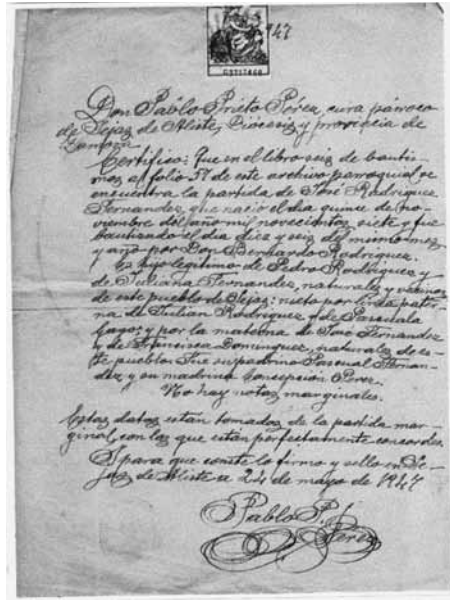 1947
Don Pablo Prieto Pérez, cura párroco
de Tejas de Aliste, Diócesis y provincia de
Zamora.
Certifico: Que en el libro seis de bautis-
mos al folio 57 de este archivo parroquial se
encuentra la partida de José Rodríguez
Fernandez, que nació el día quince de no-
viembre del año mil novecientos siete y fue
bautizado el día diez y seis del mismo mes
y año por Don Bernardo Rodríguez.
Es hijo legítimo de Pedro Rodríguez y
de Juliana Fernandez, naturales y vecinos
de este pueblo de Tejas: nieto por línea pater-
na de Julian Rodríguez y de Pascuala
Gago; y por la materna de José Fernandez
y de Francisca Dominguez, naturales de es-
te pueblo. Fue su padrino Pascual Fernan-
dez y su madrina Concepción Perez.
No hay notas marginales.
Estos datos estan tomados de la partida mar-
ginal, con los que están perfectamente concordes.
Y para que conste lo firmo y sello en Te-
jas de Aliste a 24 de mayo de 1947
Pablo P.
Perez